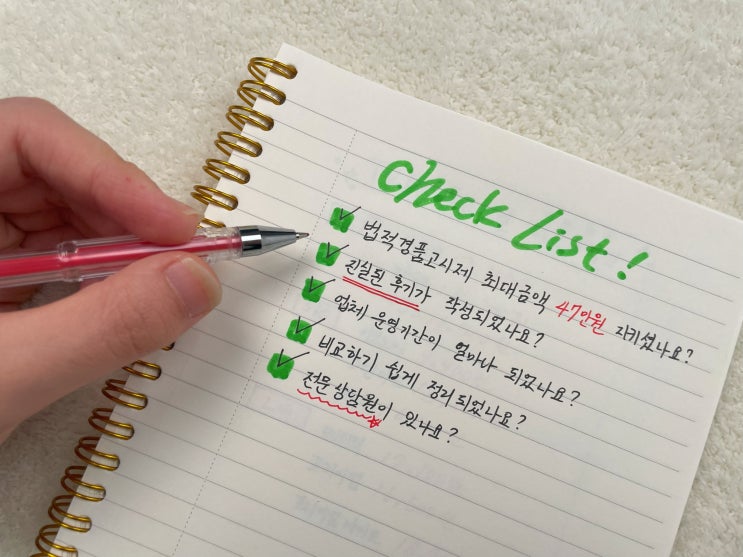 Check List!
법적경품고시제 최대금액 47만원 지키셨나요?
진실된 후기가 작성되었나요?
업체 운영기간이 얼마나 되었나요?
비교하기 쉽게 정리되었나요?
전문상담원이 있나요?